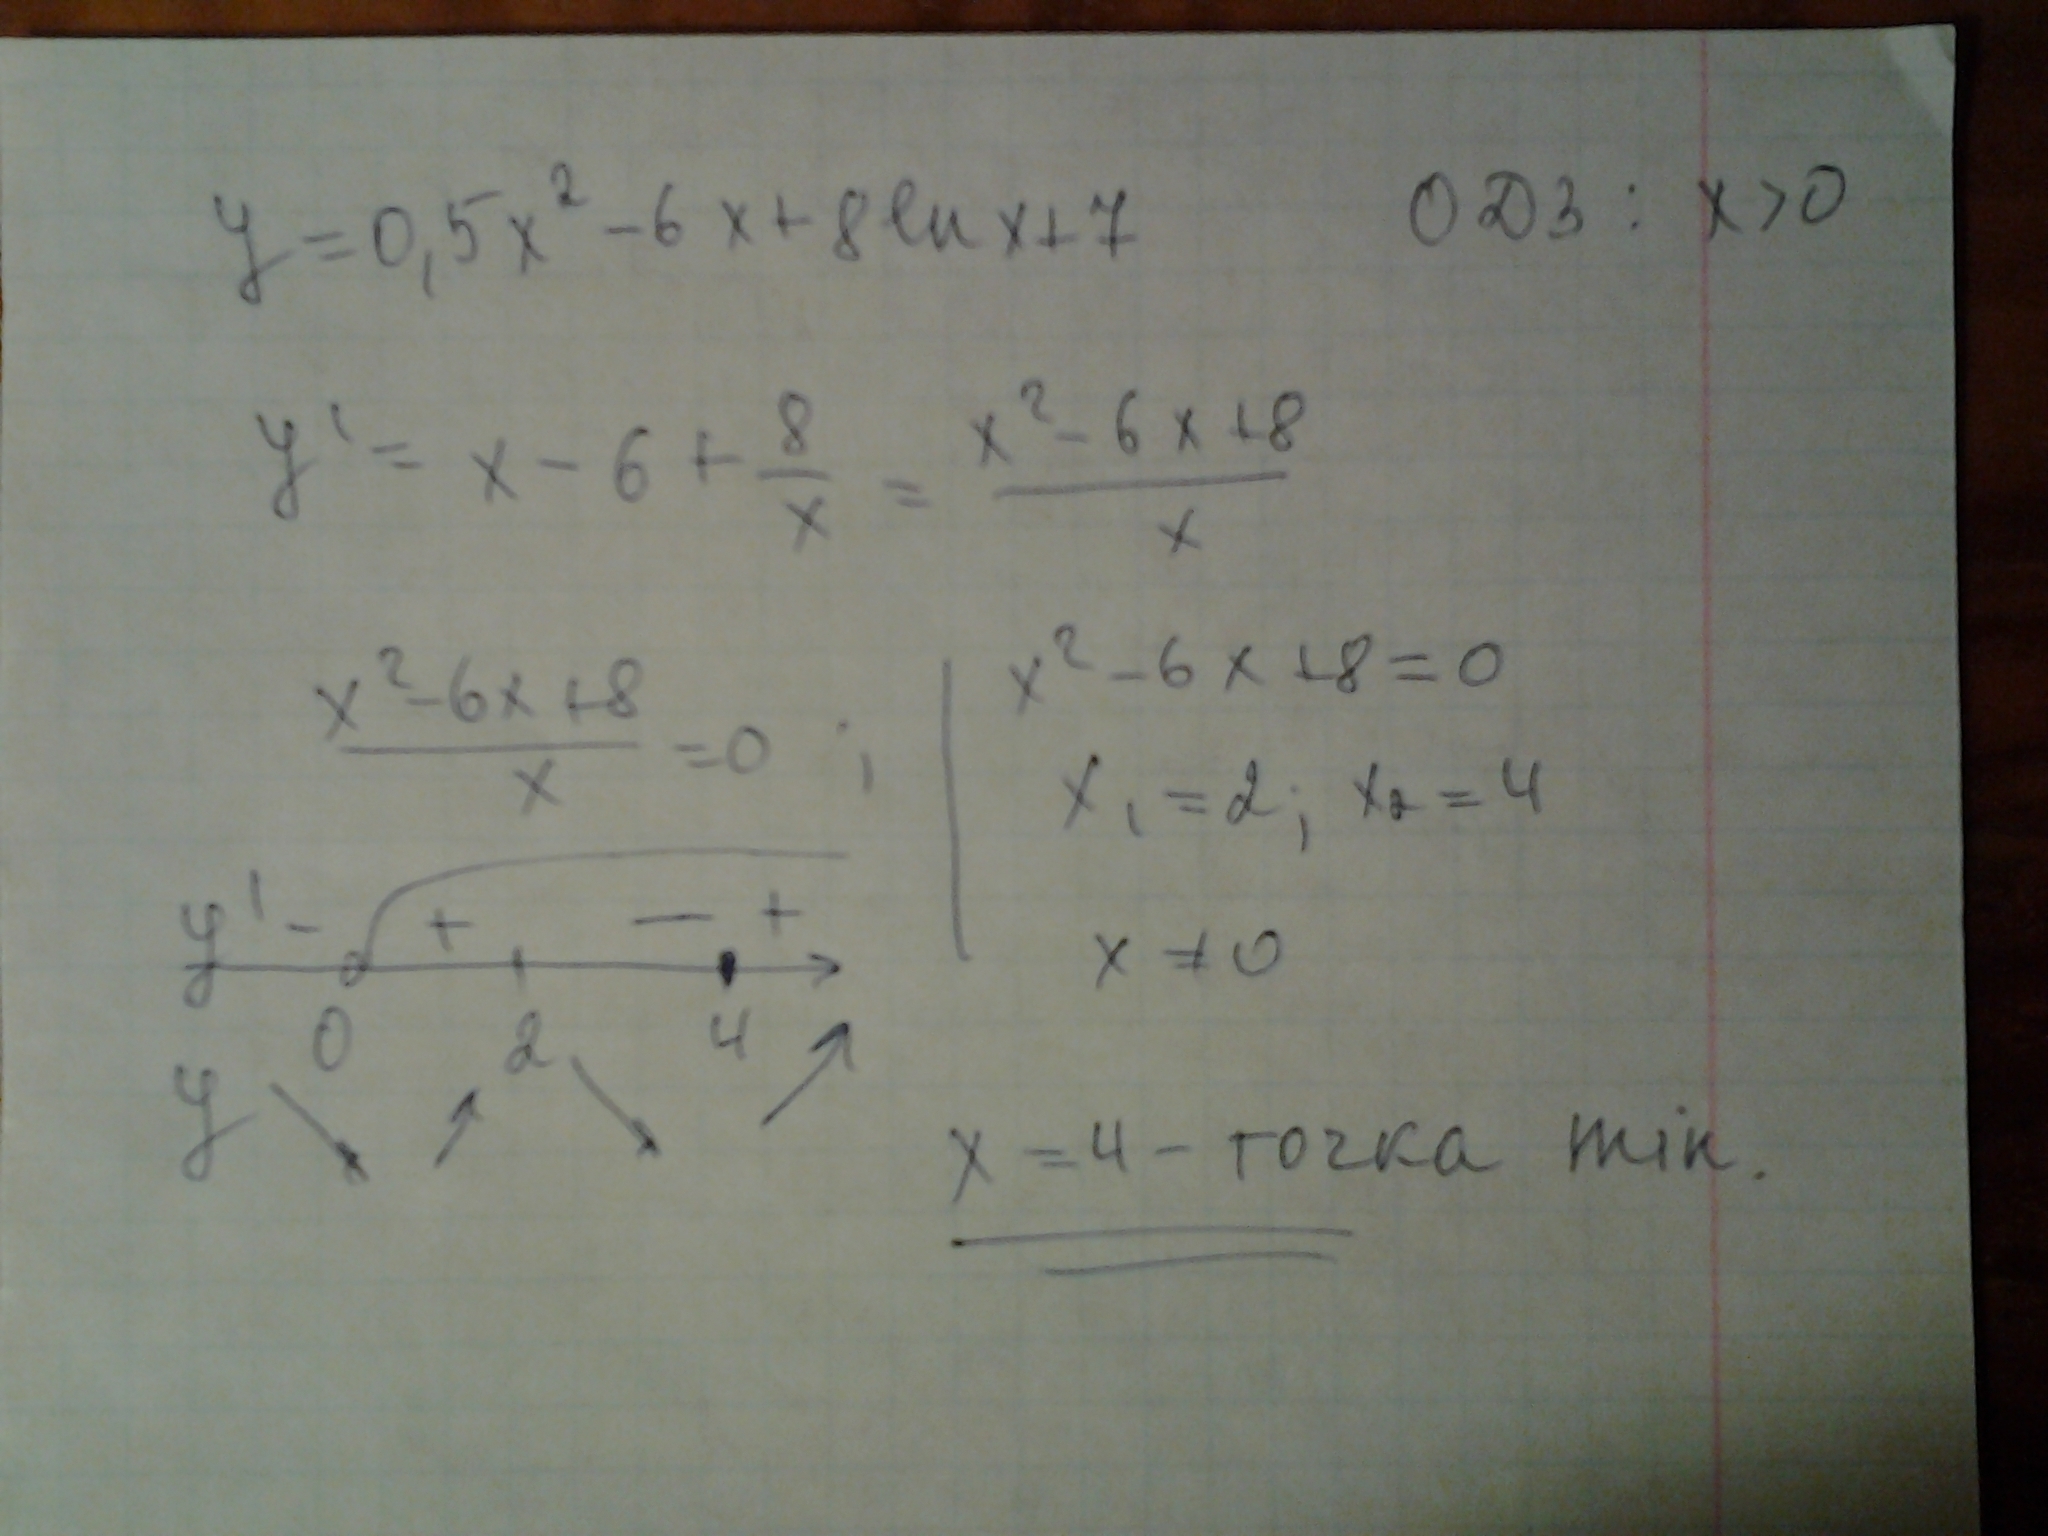 y = 0,5x² - 6x + 8 ln x + 7 ОДЗ: x > 0
y' = x - 6 + 8/x = (x² - 6x + 8)/x
(x² - 6x + 8)/x = 0 ; | x² - 6x + 8 = 0
x₁ = 2; x₂ = 4
x ≠ 0
y' - + - +
0 2 4
y ↘ ↗ ↘ ↗
x = 4 - точка min.